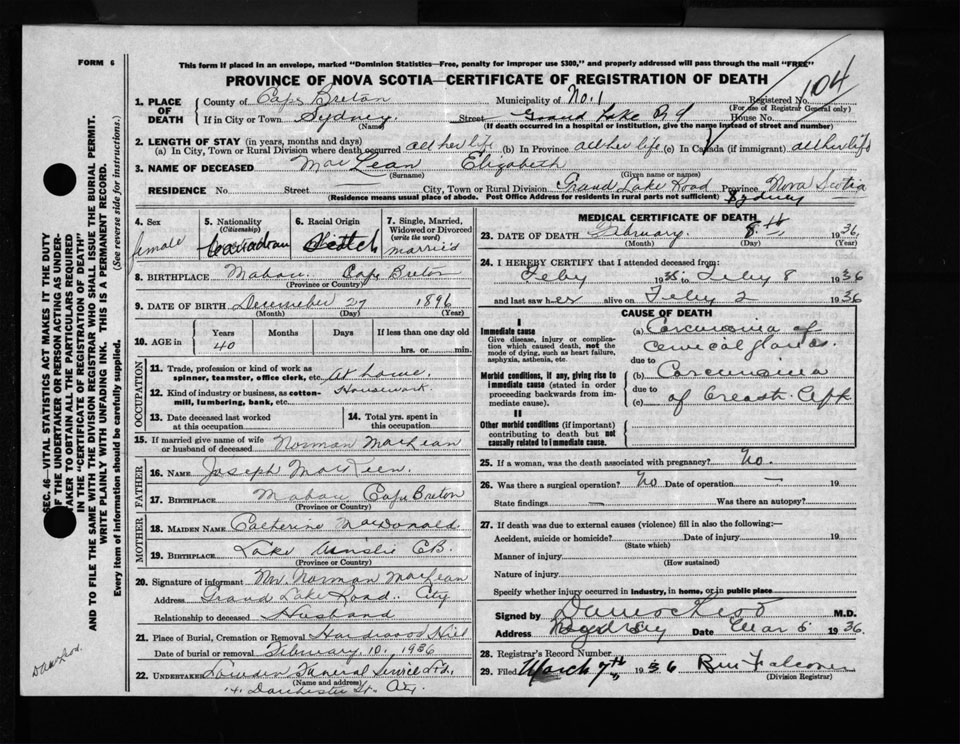 FORM 6
This form if placed in an envelope, marked "Dominion Statistics—Free, penalty for improper use $300," and properly addressed will pass through the mail "FREE"
PROVINCE OF NOVA SCOTIA—CERTIFICATE OF REGISTRATION OF DEATH
104
1. PLACE OF DEATH
County of Cape Breton Municipality of No. 1 Registered No.
(For use of Registrar General only)
If in City or Town Sydney. Street Grand Lake Rd House No.
(Name) (If death occurred in a hospital or institution, give the name instead of street and number)
2. LENGTH OF STAY (in years, months and days)
(a) In City, Town or Rural Division where death occurred all her life (b) In Province all her life (c) In Canada (if immigrant) all her life
3. NAME OF DECEASED MacLean Elizabeth
(Surname) (Given name or names)
RESIDENCE No. Street — City, Town or Rural Division Grand Lake Road Province Nova Scotia
(Residence means usual place of abode. Post Office Address for residents in rural parts not sufficient) Sydney
4. Sex
female
5. Nationality
(Citizenship)
Canadian
6. Racial Origin
Scotch
7. Single, Married, Widowed or Divorced
(write the word)
married
8. BIRTHPLACE Mabou Cape Breton
(Province or Country)
9. DATE OF BIRTH December 27 1896
(Month) (Day) (Year)
10. AGE in
Years Months Days If less than one day old
40 hrs. or min.
OCCUPATION
11. Trade, profession or kind of work as spinner, teamster, office clerk, etc. At home.
12. Kind of industry or business, as cotton-mill, lumbering, bank, etc. Housework.
13. Date deceased last worked at this occupation
14. Total yrs. spent in this occupation
15. If married give name of wife or husband of deceased Norman MacLean
FATHER
16. NAME Joseph MacKeen.
17. BIRTHPLACE Mabou Cape Breton
(Province or Country)
MOTHER
18. MAIDEN NAME Catherine MacDonald
19. BIRTHPLACE Lake Ainslie C.B.
(Province or Country)
20. Signature of informant Mr. Norman MacLean
Address Grand Lake Road. City
Relationship to deceased Husband
21. Place of Burial, Cremation or Removal Hardwood Hill
Date of burial or removal February 10, 1936
22. UNDERTAKER Funeral Service Ltd.
(Name and address)
14 Dorchester St. City.
MEDICAL CERTIFICATE OF DEATH
23. DATE OF DEATH February. 8th 1936
(Month) (Day) (Year)
24. I HEREBY CERTIFY that I attended deceased from:
Feby 1935 to Feby 8 1936
and last saw her alive on Feby 2 1936
CAUSE OF DEATH
I
Immediate cause
Give disease, injury or complication which caused death, not the mode of dying, such as heart failure, asphyxia, asthenia, etc.
(a) Carcinoma of
cervical glands.
due to
Morbid conditions, if any, giving rise to immediate cause (stated in order proceeding backwards from immediate cause).
(b) Carcinoma
due to
(c) of breast.
II
Other morbid conditions (if important) contributing to death but not causally related to immediate cause.
25. If a woman, was the death associated with pregnancy? No.
26. Was there a surgical operation? No Date of operation — 19
State findings — Was there an autopsy?
27. If death was due to external causes (violence) fill in also the following:—
Accident, suicide or homicide? Date of injury 19
(State which)
Manner of injury
(How sustained)
Nature of injury
Specify whether injury occurred in industry, in home, or in public place
Signed by M.D.
Address Date Mar 5 1936.
28. Registrar's Record Number
29. Filed March 7th, 1936 Falconer
(Division Registrar)
SEC. 46—VITAL STATISTICS ACT MAKES IT THE DUTY
OF THE UNDERTAKER OR PERSON ACTING AS UNDERTAKER TO OBTAIN ALL THE PARTICULARS REQUIRED
IN THE "CERTIFICATE OF REGISTRATION OF DEATH"
AND TO FILE THE SAME WITH THE DIVISION REGISTRAR WHO SHALL ISSUE THE BURIAL PERMIT.
WRITE PLAINLY WITH UNFADING INK. THIS IS A PERMANENT RECORD.
Every item of information should be carefully supplied. (See reverse side for instructions.)